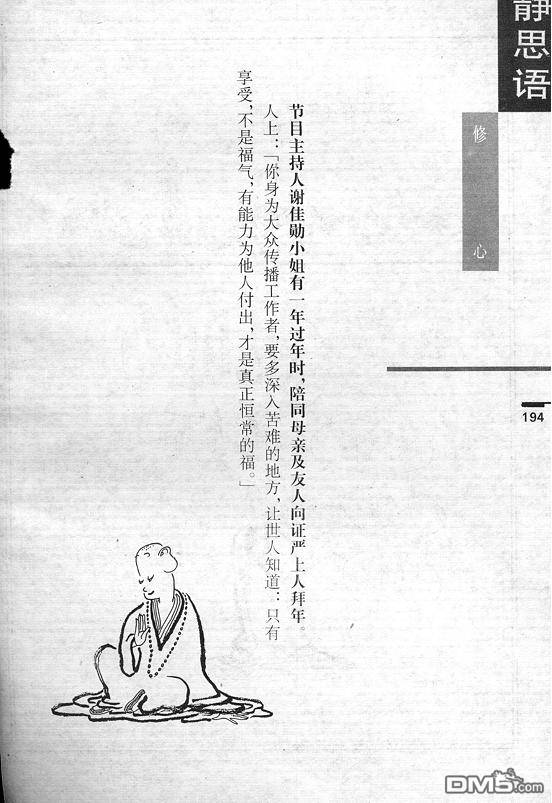 静思语
修心
194
节目主持人谢佳勋小姐有一年过年时，陪同母亲及友人向证严上人拜年。
人上：「你身为大众传播工作者，要多深入苦难的地方，让世人知道：只有
享受，不是福气，有能力为他人付出，才是真正恒常的福。」
DM5.com